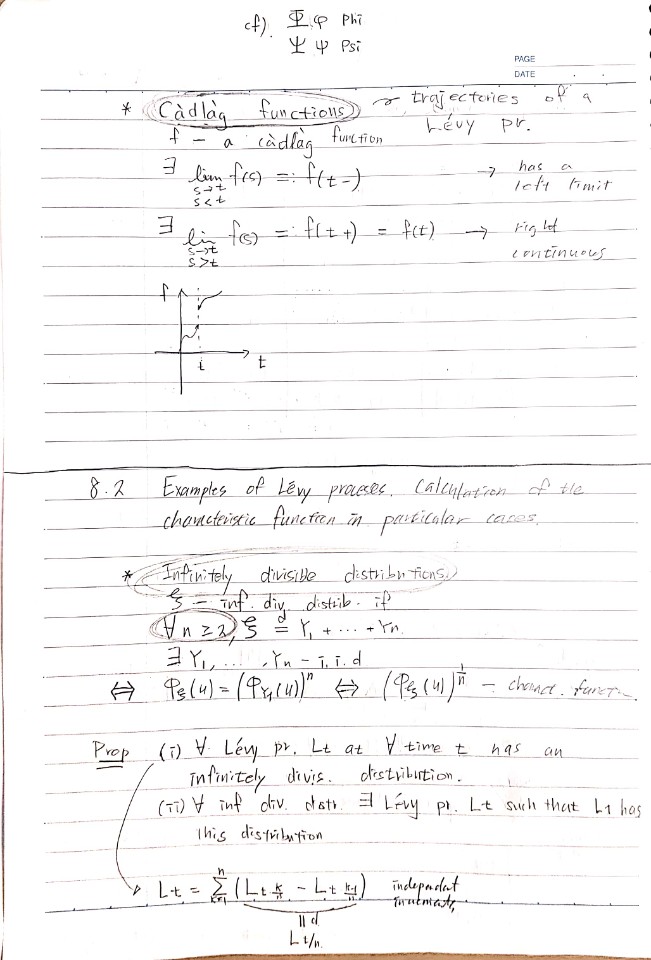 cf). Φ φ Phi
Ψ ψ Psi
PAGE
DATE
* Càdlàg functions ~ trajectories of a
Lévy pr.
f - a càdlàg function
∃ lim f(s) =: f(t-) → has a
s→t
s<t
left limit
∃ lim f(s) =: f(t+) = f(t) → right
s→t
s>t
continuous
f
t
t
8.2 Examples of Lévy processes. Calculation of the
characteristic function in particular cases.
* Infinitely divisible distributions.
ξ - inf. div. distrib. if
∀n ≥ 2, ξ =ᵈ Y₁ + ... + Yn.
∃ Y₁, ..., Yn - i.i.d
⇔ φξ(u) = (φY₁(u))ⁿ ⇔ (φξ(u))^{1/n} - charact. functn.
Prop (i) ∀ Lévy pr. Lt at ∀ time t has an
infinitely divis. distribution.
(ii) ∀ inf div. distr. ∃ Lévy pr. Lt such that L1 has
this distribution
Lt = Σ_{k=1}^{n} (L_{t k/n} - L_{t (k-1)/n}) independent
increments,
|| d
L t/n.